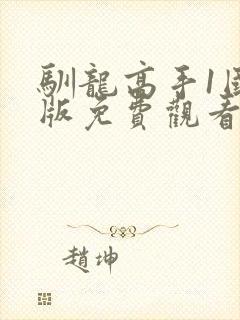 馴龍高手1国
版免費觀看
趙坤